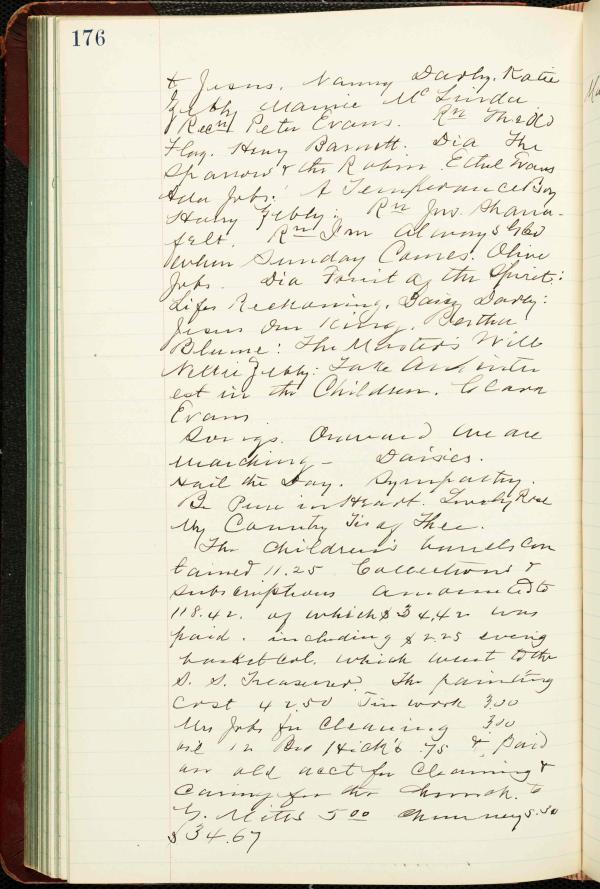 176
& Jesus. Nanny Darby. Katie
Gebby Mamie McLinda
Recn Peter Evans. Rn The Old
Flag. Henry Barnett. Dia The
Sparrow & the Robin. Ethel Evans
Ada Jobs: A Temperance Boy
Harry Gebby: Rn Jno. Shana-
felt. Rn I'm always Glad
when Sunday Comes. Olive
Jobs. Dia Fruit of the Spirit:
Lifes Reckoning. Daisy Darby:
Jesus Our King. Bertha
Blume: The Master's Will
Nellie Gebby: Take An inter
est in the Children. Clara
Evans
Songs. Onward We are
marching - Daisies.
Hail the Day. Sympathy.
Be Pure in Heart. Lovely Rose
My Country Tis of Thee.
The children's barrels con
tained 11.25 Collections &
subscriptions amounted to
118.42. of which $34.42 was
paid. including $2.25 evening
basket col. which went to the
S. S. Treasurer. The painting
cost 42.50 Tin work 3.00
Mrs Jobs for Cleaning 3.00
oil in Bro Hick's .75 & paid
an old acct for Cleaning &
Caring for the church. to
G. Mitts 5.00 chimneys .30
$34.67